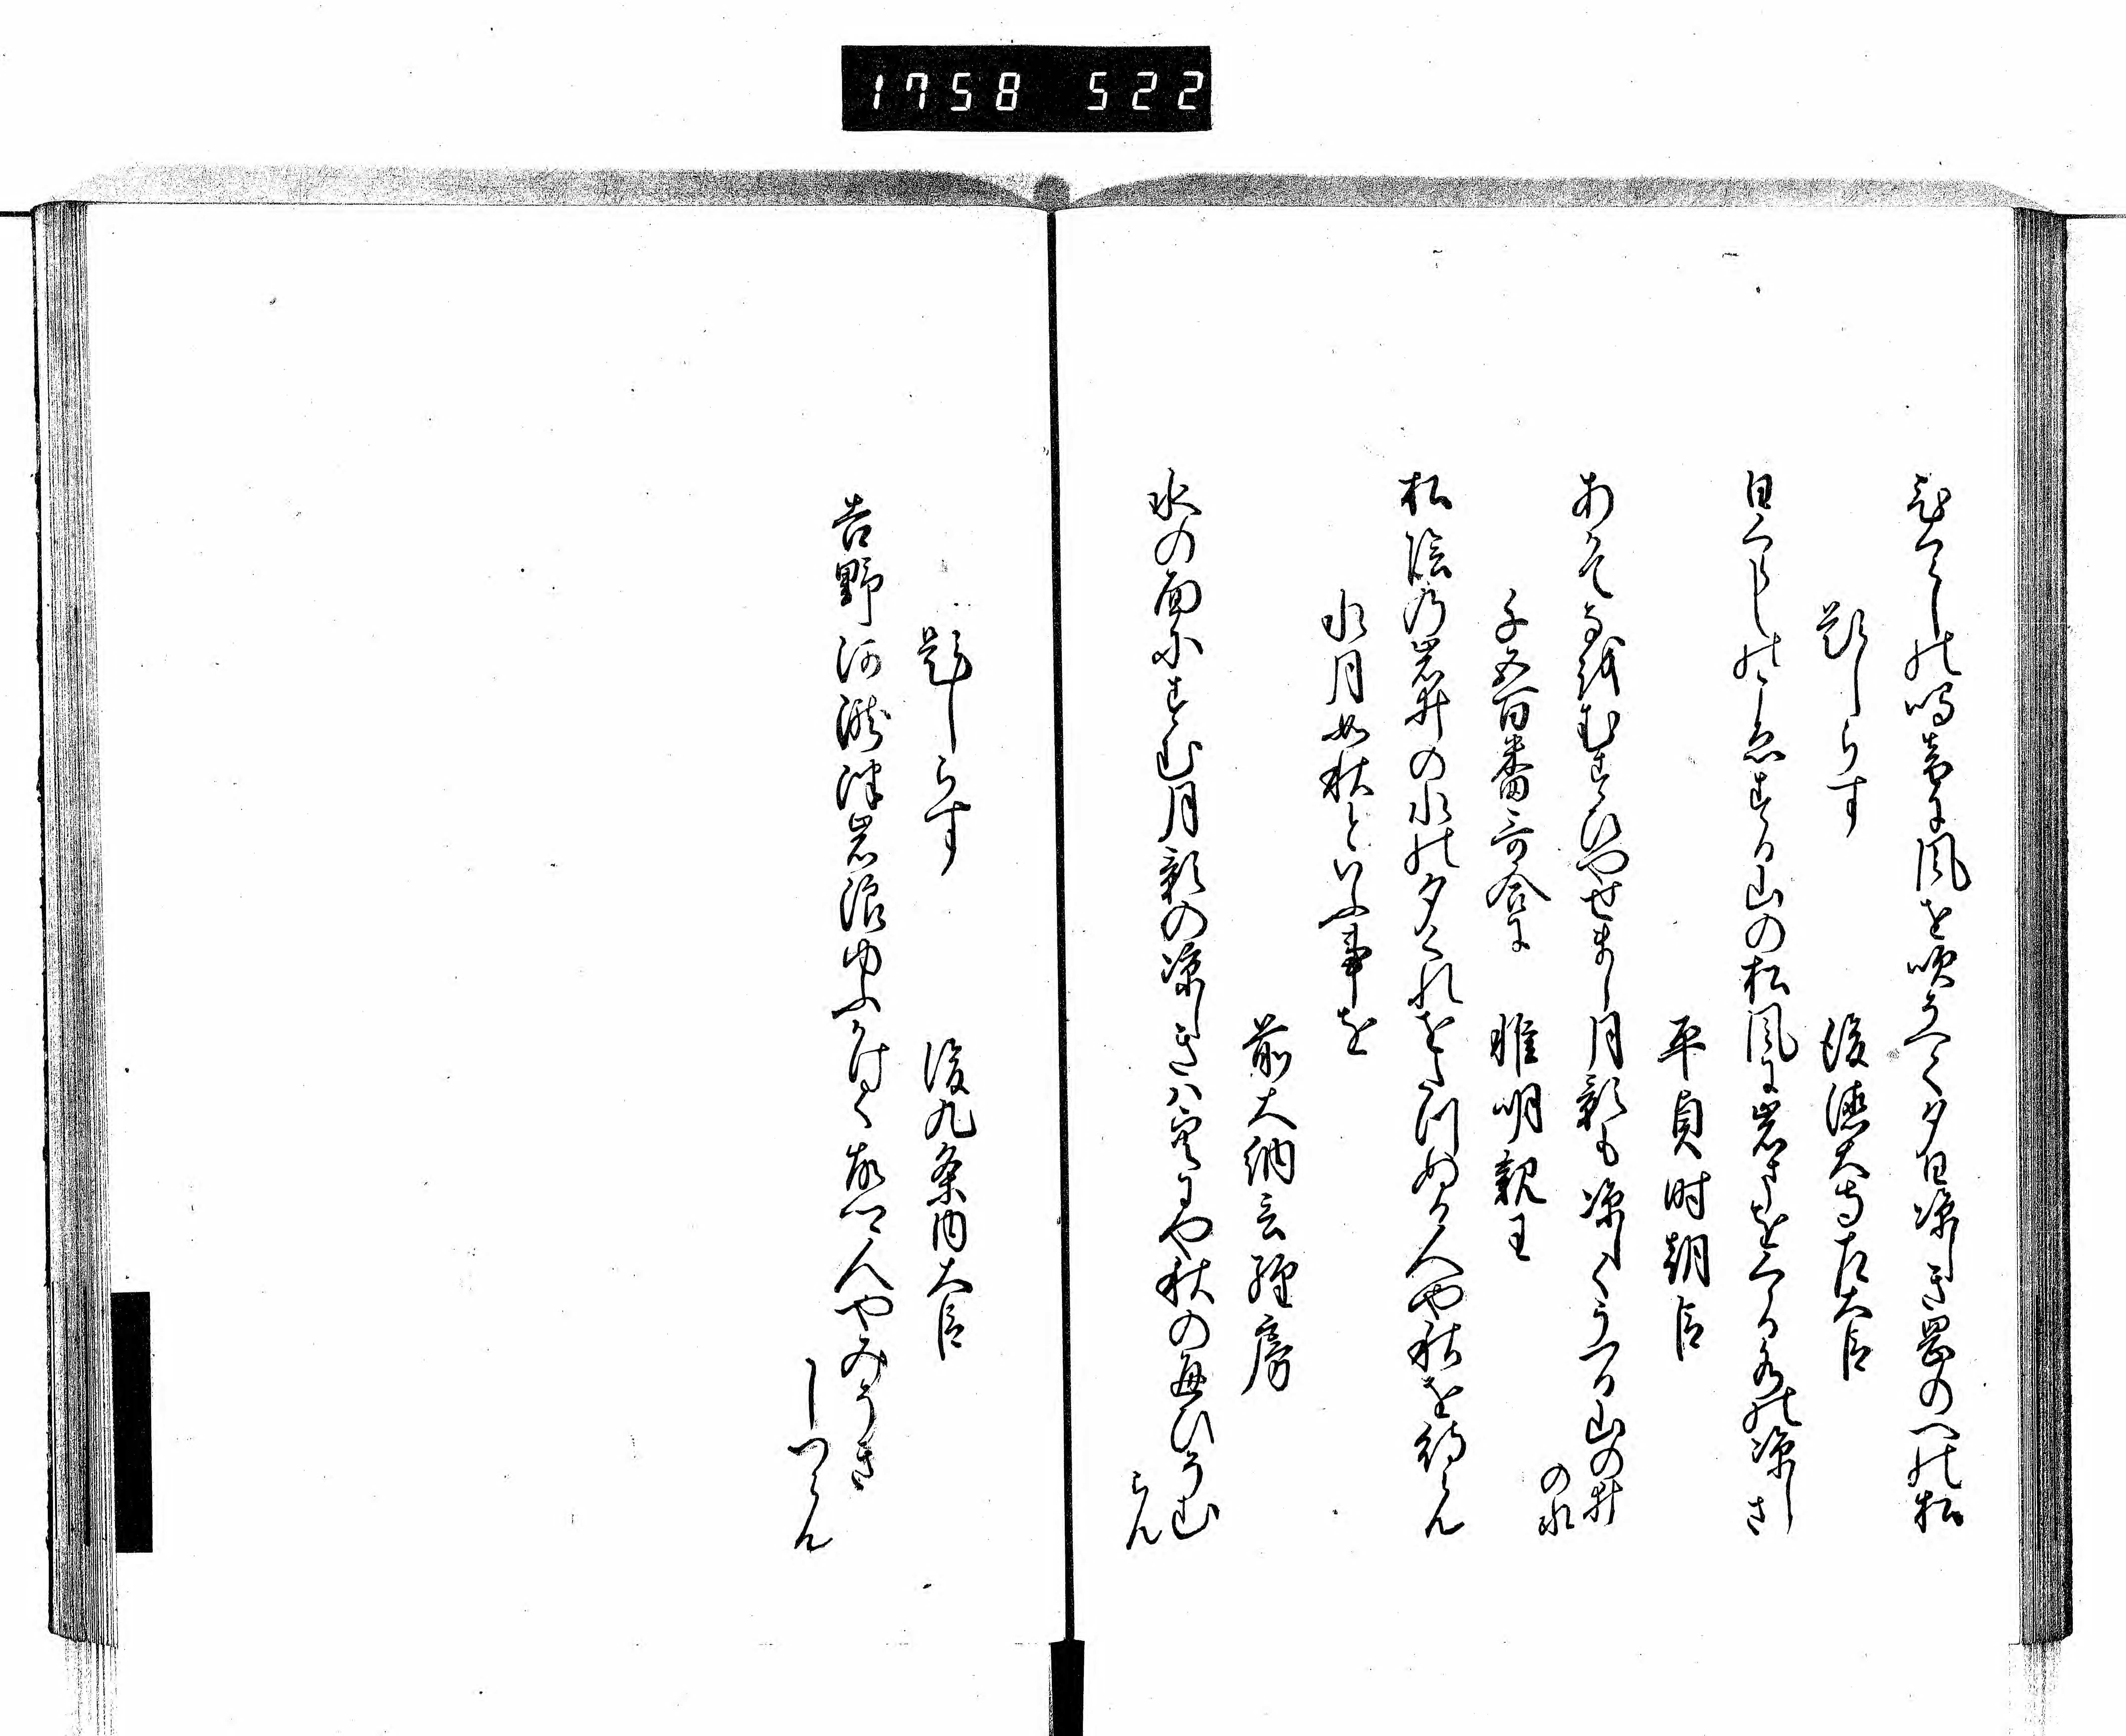 1758 522
ひくらしの鳴音に風を吹そへて夕日涼しき岡のへの松
題しらす
後徳大寺左大臣
日くらしのこゑする山の松風に岩まをくゝる水の涼しさ
平貞時朝臣
あかてなをむすひやせまし月影も涼しくうつる山の井
の水
千五百番哥合に
惟明親王
松陰の岩井の水の夕くれをたつぬる人や秋を待らん
水月如秋といふ事を
前大納言経房
水の面にすむ月影の涼しきは空にや秋の通ひそむ
らん
題しらす
後九条内大臣
吉野河瀧津岩浪ゆふかけて故郷人やみそき
しつらん